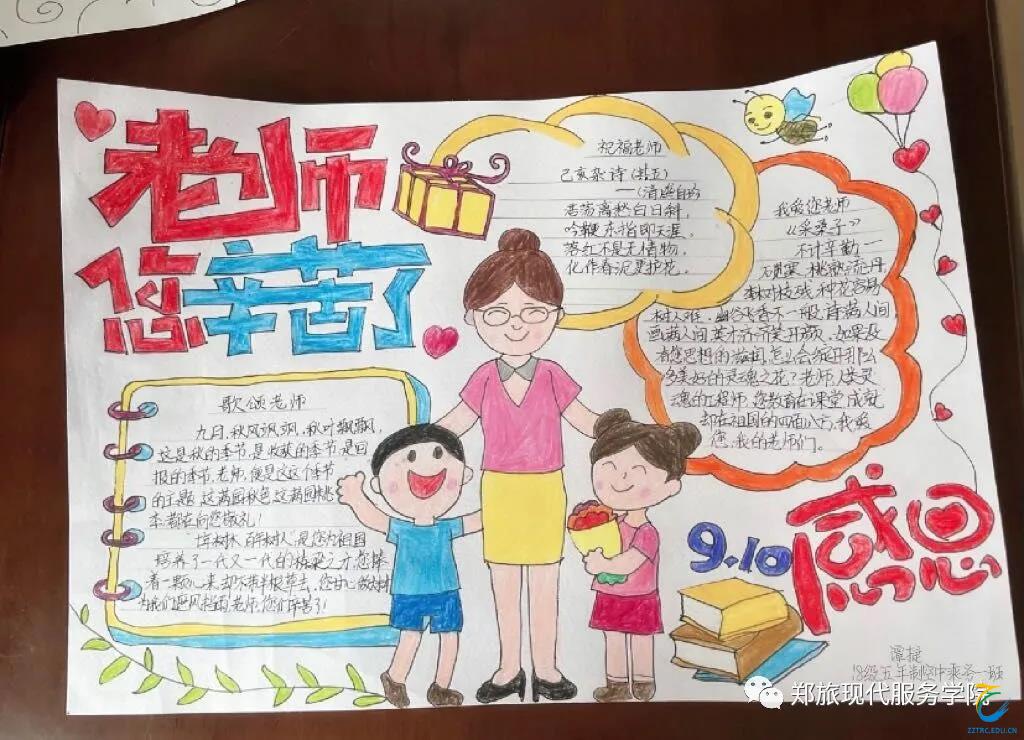 老师
您辛苦了
祝福老师
己亥杂诗(其五)
——(清)龚自珍
浩荡离愁白日斜,
吟鞭东指即天涯。
落红不是无情物,
化作春泥更护花。
我爱您老师
《采桑子》
不计辛勤一
砚寒,桃熟流丹,
李树枝残,种花容易
树人难。幽谷飞香不一般,诗满人间,
画满人间,英才济济笑开颜。如果没
有您思想的滋润,怎么会绽开那么
多美好的灵魂之花?老师,人类灵
魂的工程师,您教育在课堂,成就
却在祖国的四面八方,我爱
您,我的老师们。
歌颂老师
九月,秋风飒飒,秋叶飘飘,
这是秋的季节,是收获的季节,是回
报的季节,老师,便是这个季节
的主题,这满园秋色,这满园桃
李,都在向您敬礼!
十年树木,百年树人,是您为祖国
培养了一代又一代的栋梁之才,您捧
着一颗心来,却不带半根草去,您甘
为我们遮风挡雨,老师,您们辛苦了!
9.10
感恩
谭捷
18级五年制空中乘务一班
郑旅现代服务学院
ZZTRC.EDU.CN